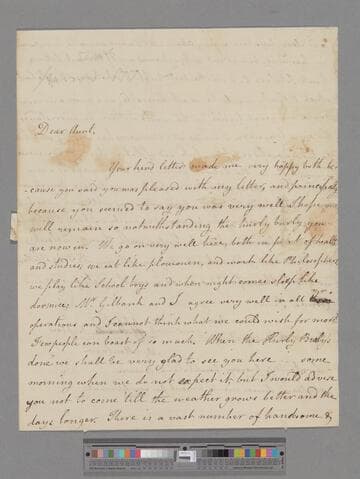 Dear Aunt,
Your kind letter made me very happy both be-
-cause you said you was pleased with my letter, and principally
because you seemed to say you was very well I hope
well remain so notwithstanding the hurly burly you
are now in. We go on very well here, both in point of health
and studies, we eat like plowmen, and work like Philosophers
we play like School boys and when night comes sleep like
dormice. Mr. Gilbank and I agree very well in all our
operations and I cannot think what we could wish for more
Few people can boast of so much. When the Hurly Burly's
done we shall be very glad to see you here some
morning when we do not expect it; but I would advise
you not to come till the weather grows better and the
days longer. There is a vast number of handsome &